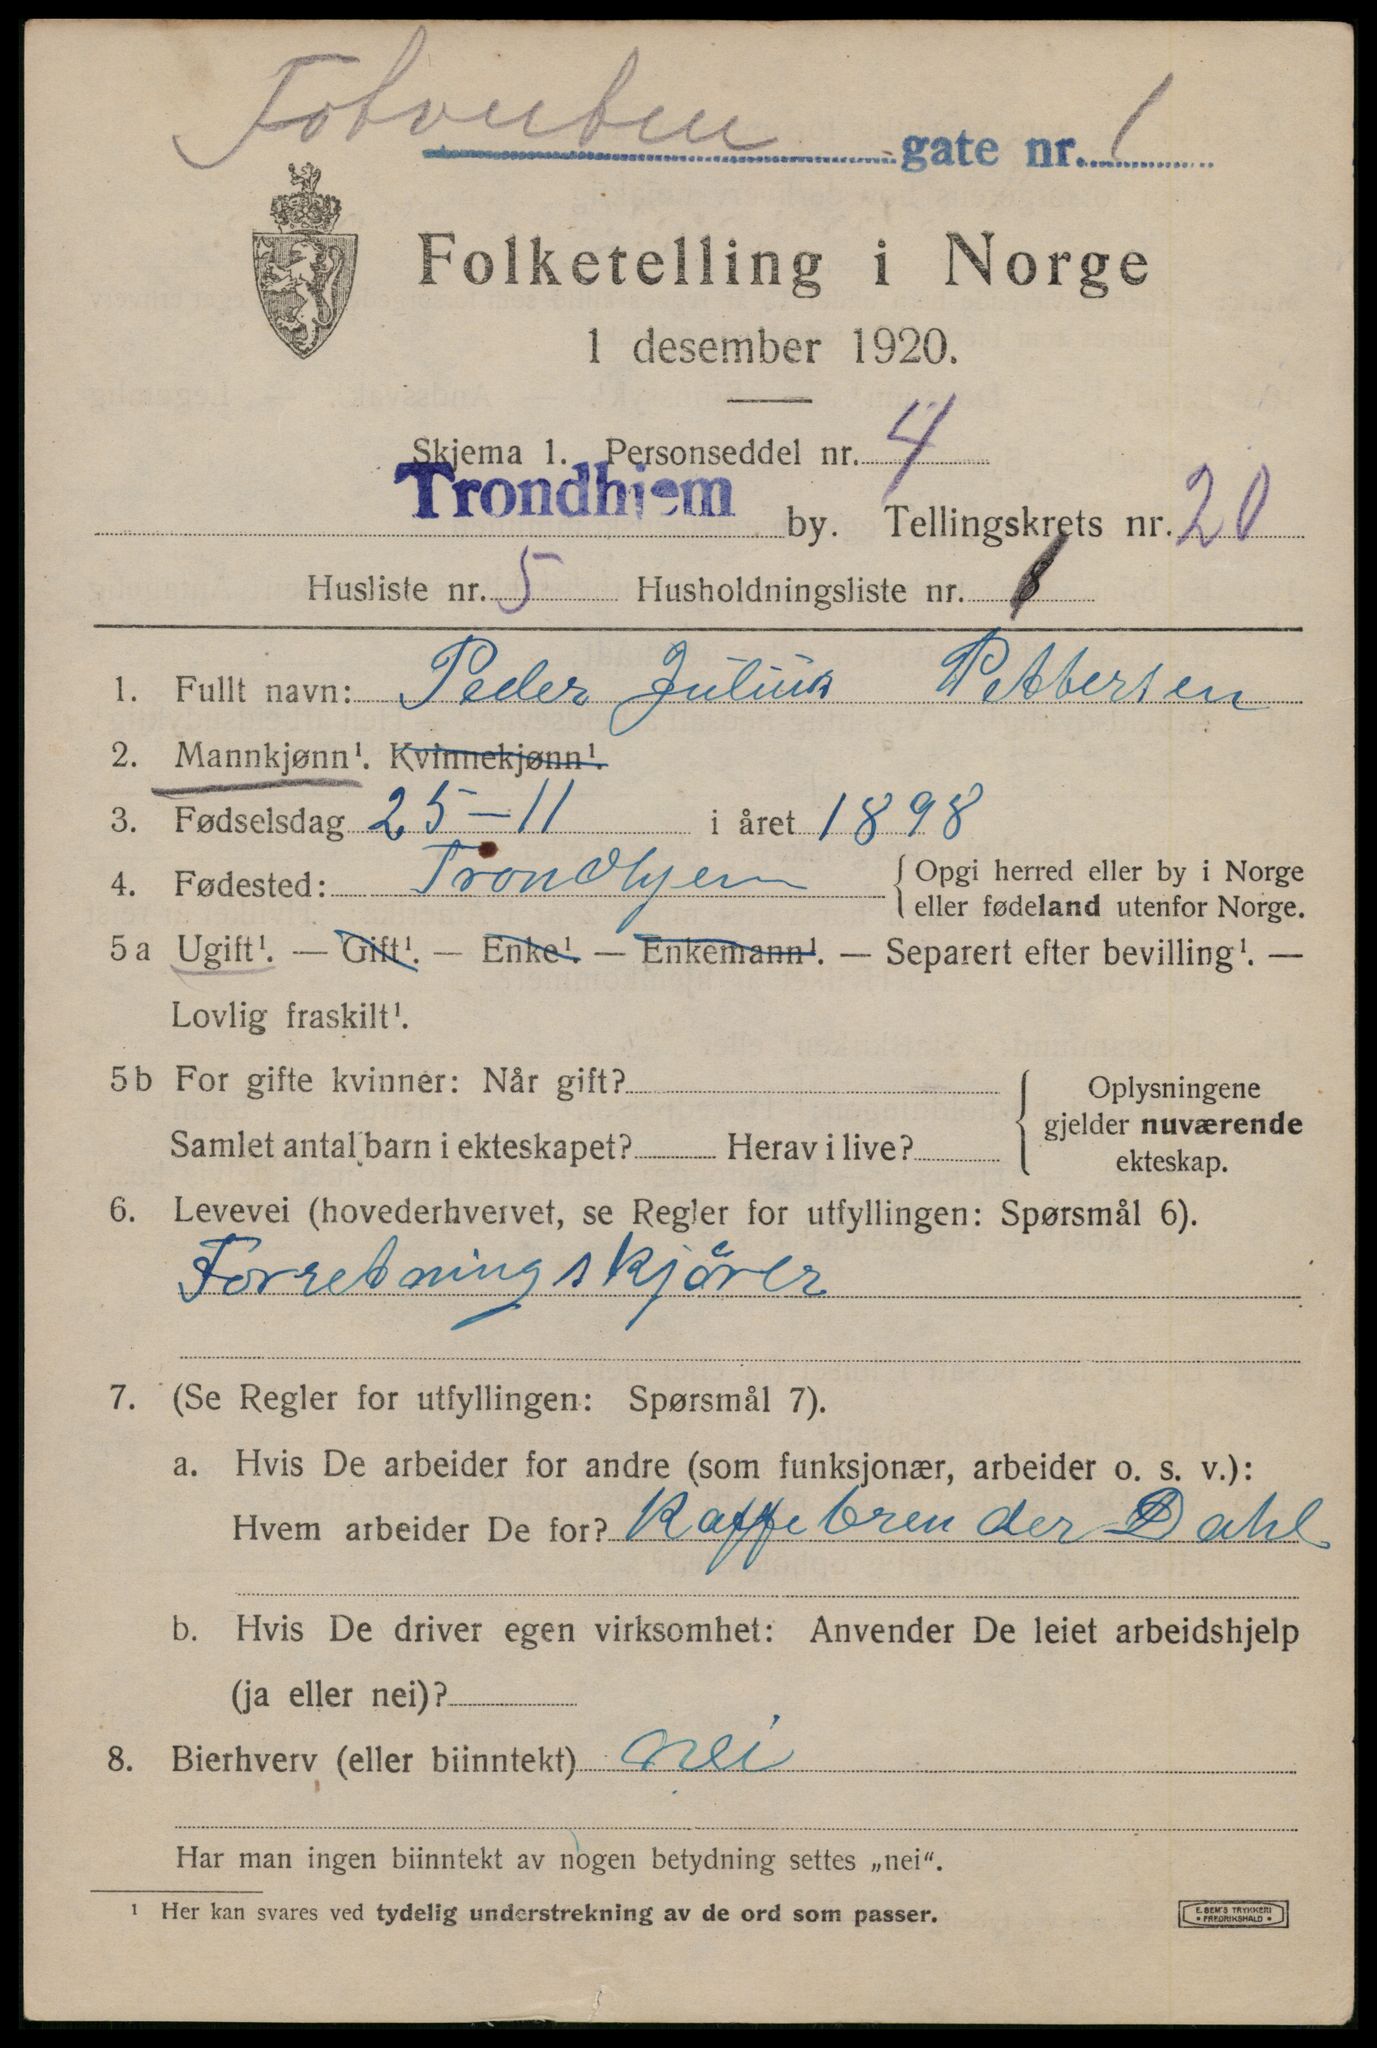 gate nr. 1
Folketelling i Norge
1 desember 1920.
Skjema 1. Personseddel nr. 4
Trondhjem by. Tellingskrets nr. 20
Husliste nr. 5 Husholdningsliste nr. 1
1. Fullt navn: Peder Julius Pettersen
2. Mannkjønn¹. Kvinnekjønn¹.
3. Fødselsdag 25-11 i året 1898
4. Fødested: Trondhjem { Opgi herred eller by i Norge
eller fødeland utenfor Norge.
5a Ugift¹. — Gift¹. — Enke¹. — Enkemann¹. — Separert efter bevilling¹. —
Lovlig fraskilt¹.
5b For gifte kvinner: Når gift? { Oplysningene
gjelder nuværende
Samlet antal barn i ekteskapet? Herav i live?
ekteskap.
6. Levevei (hovederhvervet, se Regler for utfyllingen: Spørsmål 6).
Forretningskjører
7. (Se Regler for utfyllingen: Spørsmål 7).
a. Hvis De arbeider for andre (som funksjonær, arbeider o. s. v.):
Hvem arbeider De for? Kaffebrender Dahl
b. Hvis De driver egen virksomhet: Anvender De leiet arbeidshjelp
(ja eller nei)?
8. Bierhverv (eller biinntekt) nei
Har man ingen biinntekt av nogen betydning settes „nei“.
¹ Her kan svares ved tydelig understrekning av de ord som passer.
E. SEM'S TRYKKERI
FREDRIKSHALD